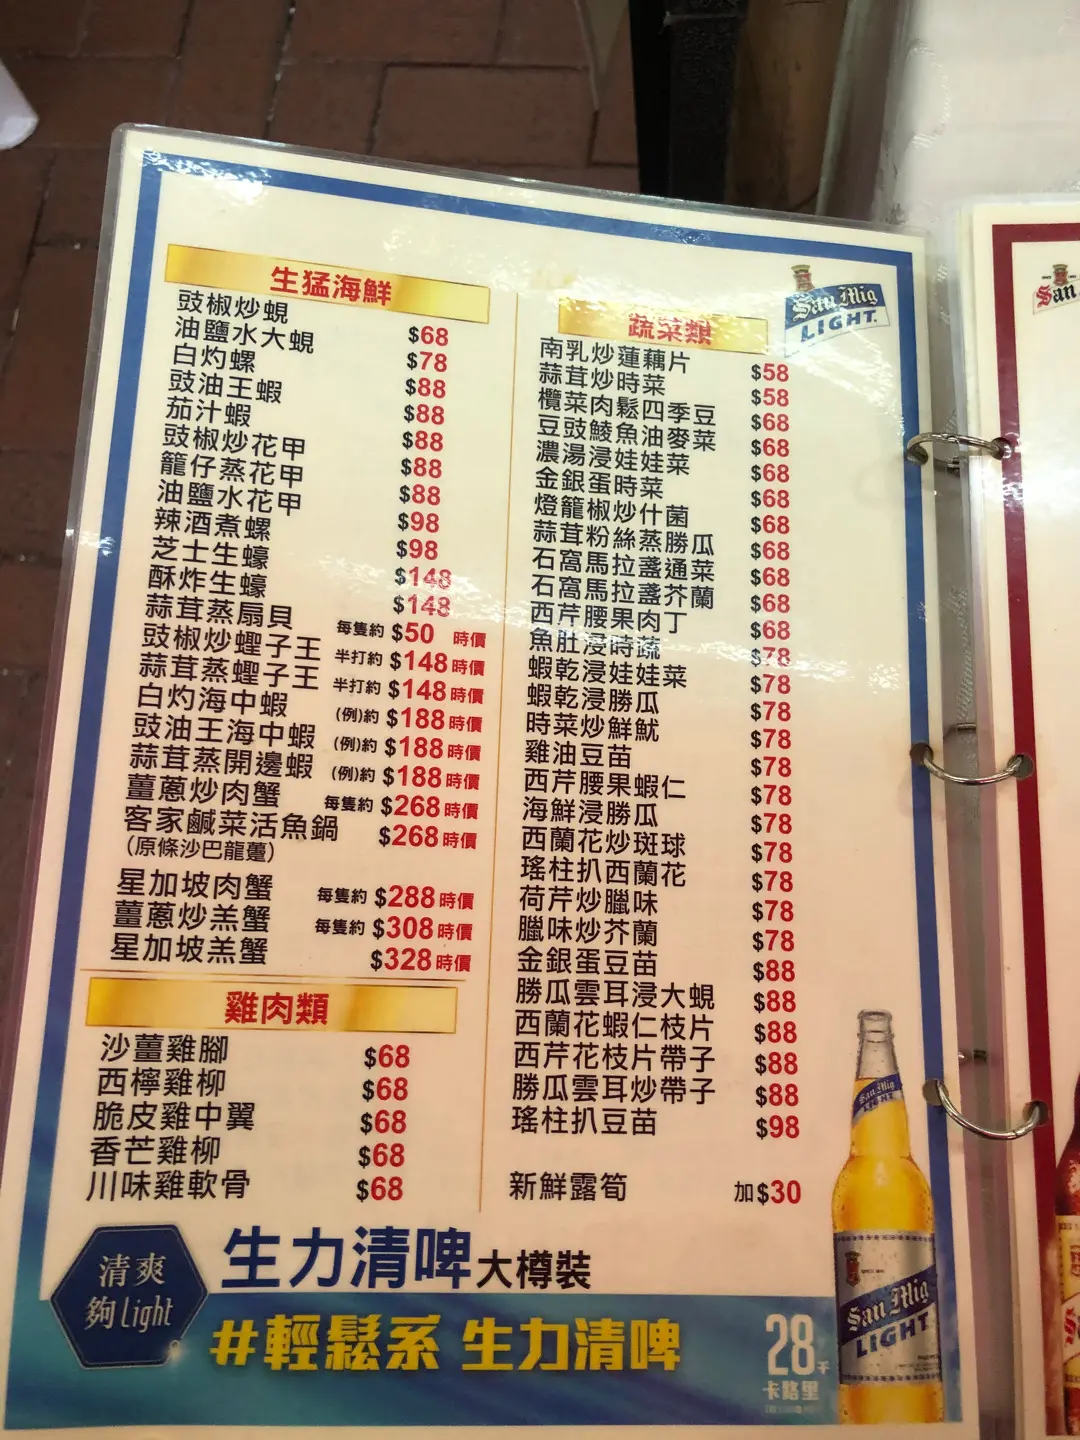 生猛海鮮
豉椒炒蜆 $68
油鹽水大蜆 $78
白灼螺 $88
豉油王蝦 $88
茄汁蝦 $88
豉椒炒花甲 $88
籠仔蒸花甲 $88
油鹽水花甲 $98
辣酒煮螺 $98
芝士生蠔 $148
酥炸生蠔 $148
蒜茸蒸扇貝 每隻約 $50 時價
豉椒炒蟶子王 半打約 $148 時價
蒜茸蒸蟶子王 半打約 $148 時價
白灼海中蝦 (例)約 $188 時價
豉油王海中蝦 (例)約 $188 時價
蒜茸蒸開邊蝦 (例)約 $188 時價
薑蔥炒肉蟹 每隻約 $268 時價
客家鹹菜活魚鍋 $268 時價
(原條沙巴龍躉)
星加坡肉蟹 每隻約 $288 時價
薑蔥炒羔蟹 每隻約 $308 時價
星加坡羔蟹 $328 時價
雞肉類
沙薑雞腳 $68
西檸雞柳 $68
脆皮雞中翼 $68
香芒雞柳 $68
川味雞軟骨 $68
San Mig
LIGHT
蔬菜類
南乳炒蓮藕片 $58
蒜茸炒時菜 $58
欖菜肉鬆四季豆 $68
豆豉鯪魚油麥菜 $68
濃湯浸娃娃菜 $68
金銀蛋時菜 $68
燈籠椒炒什菌 $68
蒜茸粉絲蒸勝瓜 $68
石窩馬拉盞通菜 $68
石窩馬拉盞芥蘭 $68
西芹腰果肉丁 $68
魚肚浸時蔬 $78
蝦乾浸娃娃菜 $78
蝦乾浸勝瓜 $78
時菜炒鮮魷 $78
雞油豆苗 $78
西芹腰果蝦仁 $78
海鮮浸勝瓜 $78
西蘭花炒斑球 $78
瑤柱扒西蘭花 $78
荷芹炒臘味 $78
臘味炒芥蘭 $78
金銀蛋豆苗 $88
勝瓜雲耳浸大蜆 $88
西蘭花蝦仁枝片 $88
西芹花枝片帶子 $88
勝瓜雲耳炒帶子 $88
瑤柱扒豆苗 $98
新鮮露筍 加$30
清爽
夠Light
生力清啤大樽裝
#輕鬆系 生力清啤
28千
卡路里
San Mig
LIGHT
San Mig
LIGHT
San